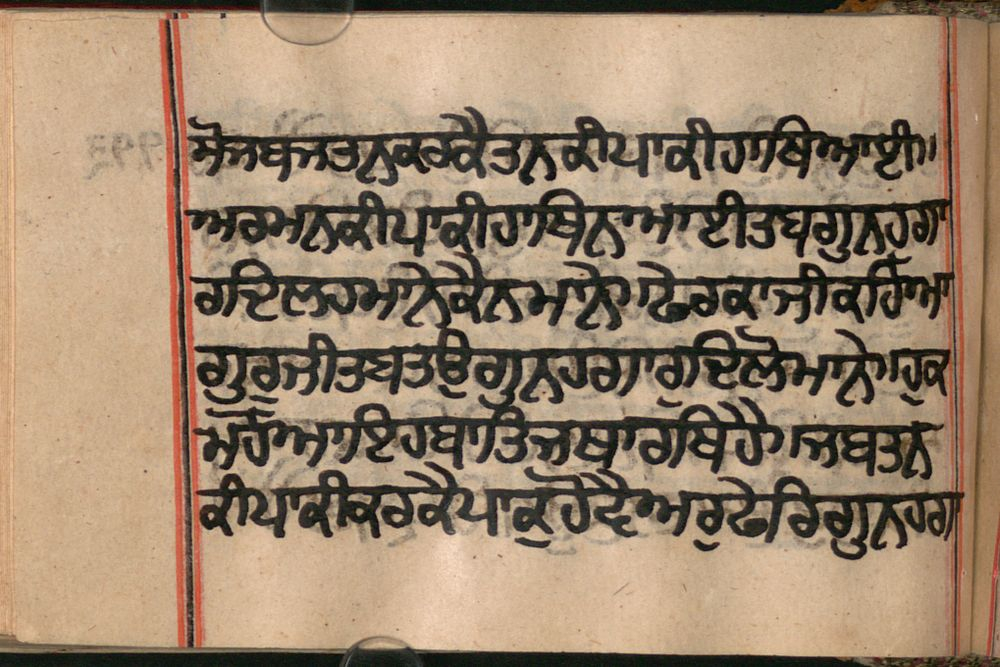 ਸੋਜਬਜਤਨਕਰਕੈਤਨਕੀਪਾਕੀਹਾਥਿਆਈ॥
ਅਰਮਨਕੀਪਾਕੀਹਾਥਿਨਆਈਤਬਗੁਨਹਗਾ
ਰਦਿਲਹਮਾਨੇਕੈਨਮਾਨੇ।ਫੇਰਕਾਜੀਕਹਿਆ
ਗੁਰੁਜੀਤਬਤਉਗੁਨਹਗਾਰੁਦਿਲੋਮਾਨੇ।ਹੁਕ
ਮਹੋਆਇਹਬਾਤਿਜਥਾਰਥਿਹੈ।ਜਬਤਨ
ਕੀਪਾਕੀਕਰਕੈਪਾਕੁਹੋਵੈਅਰੁਫੇਰਿਗੁਨਹਗਾ